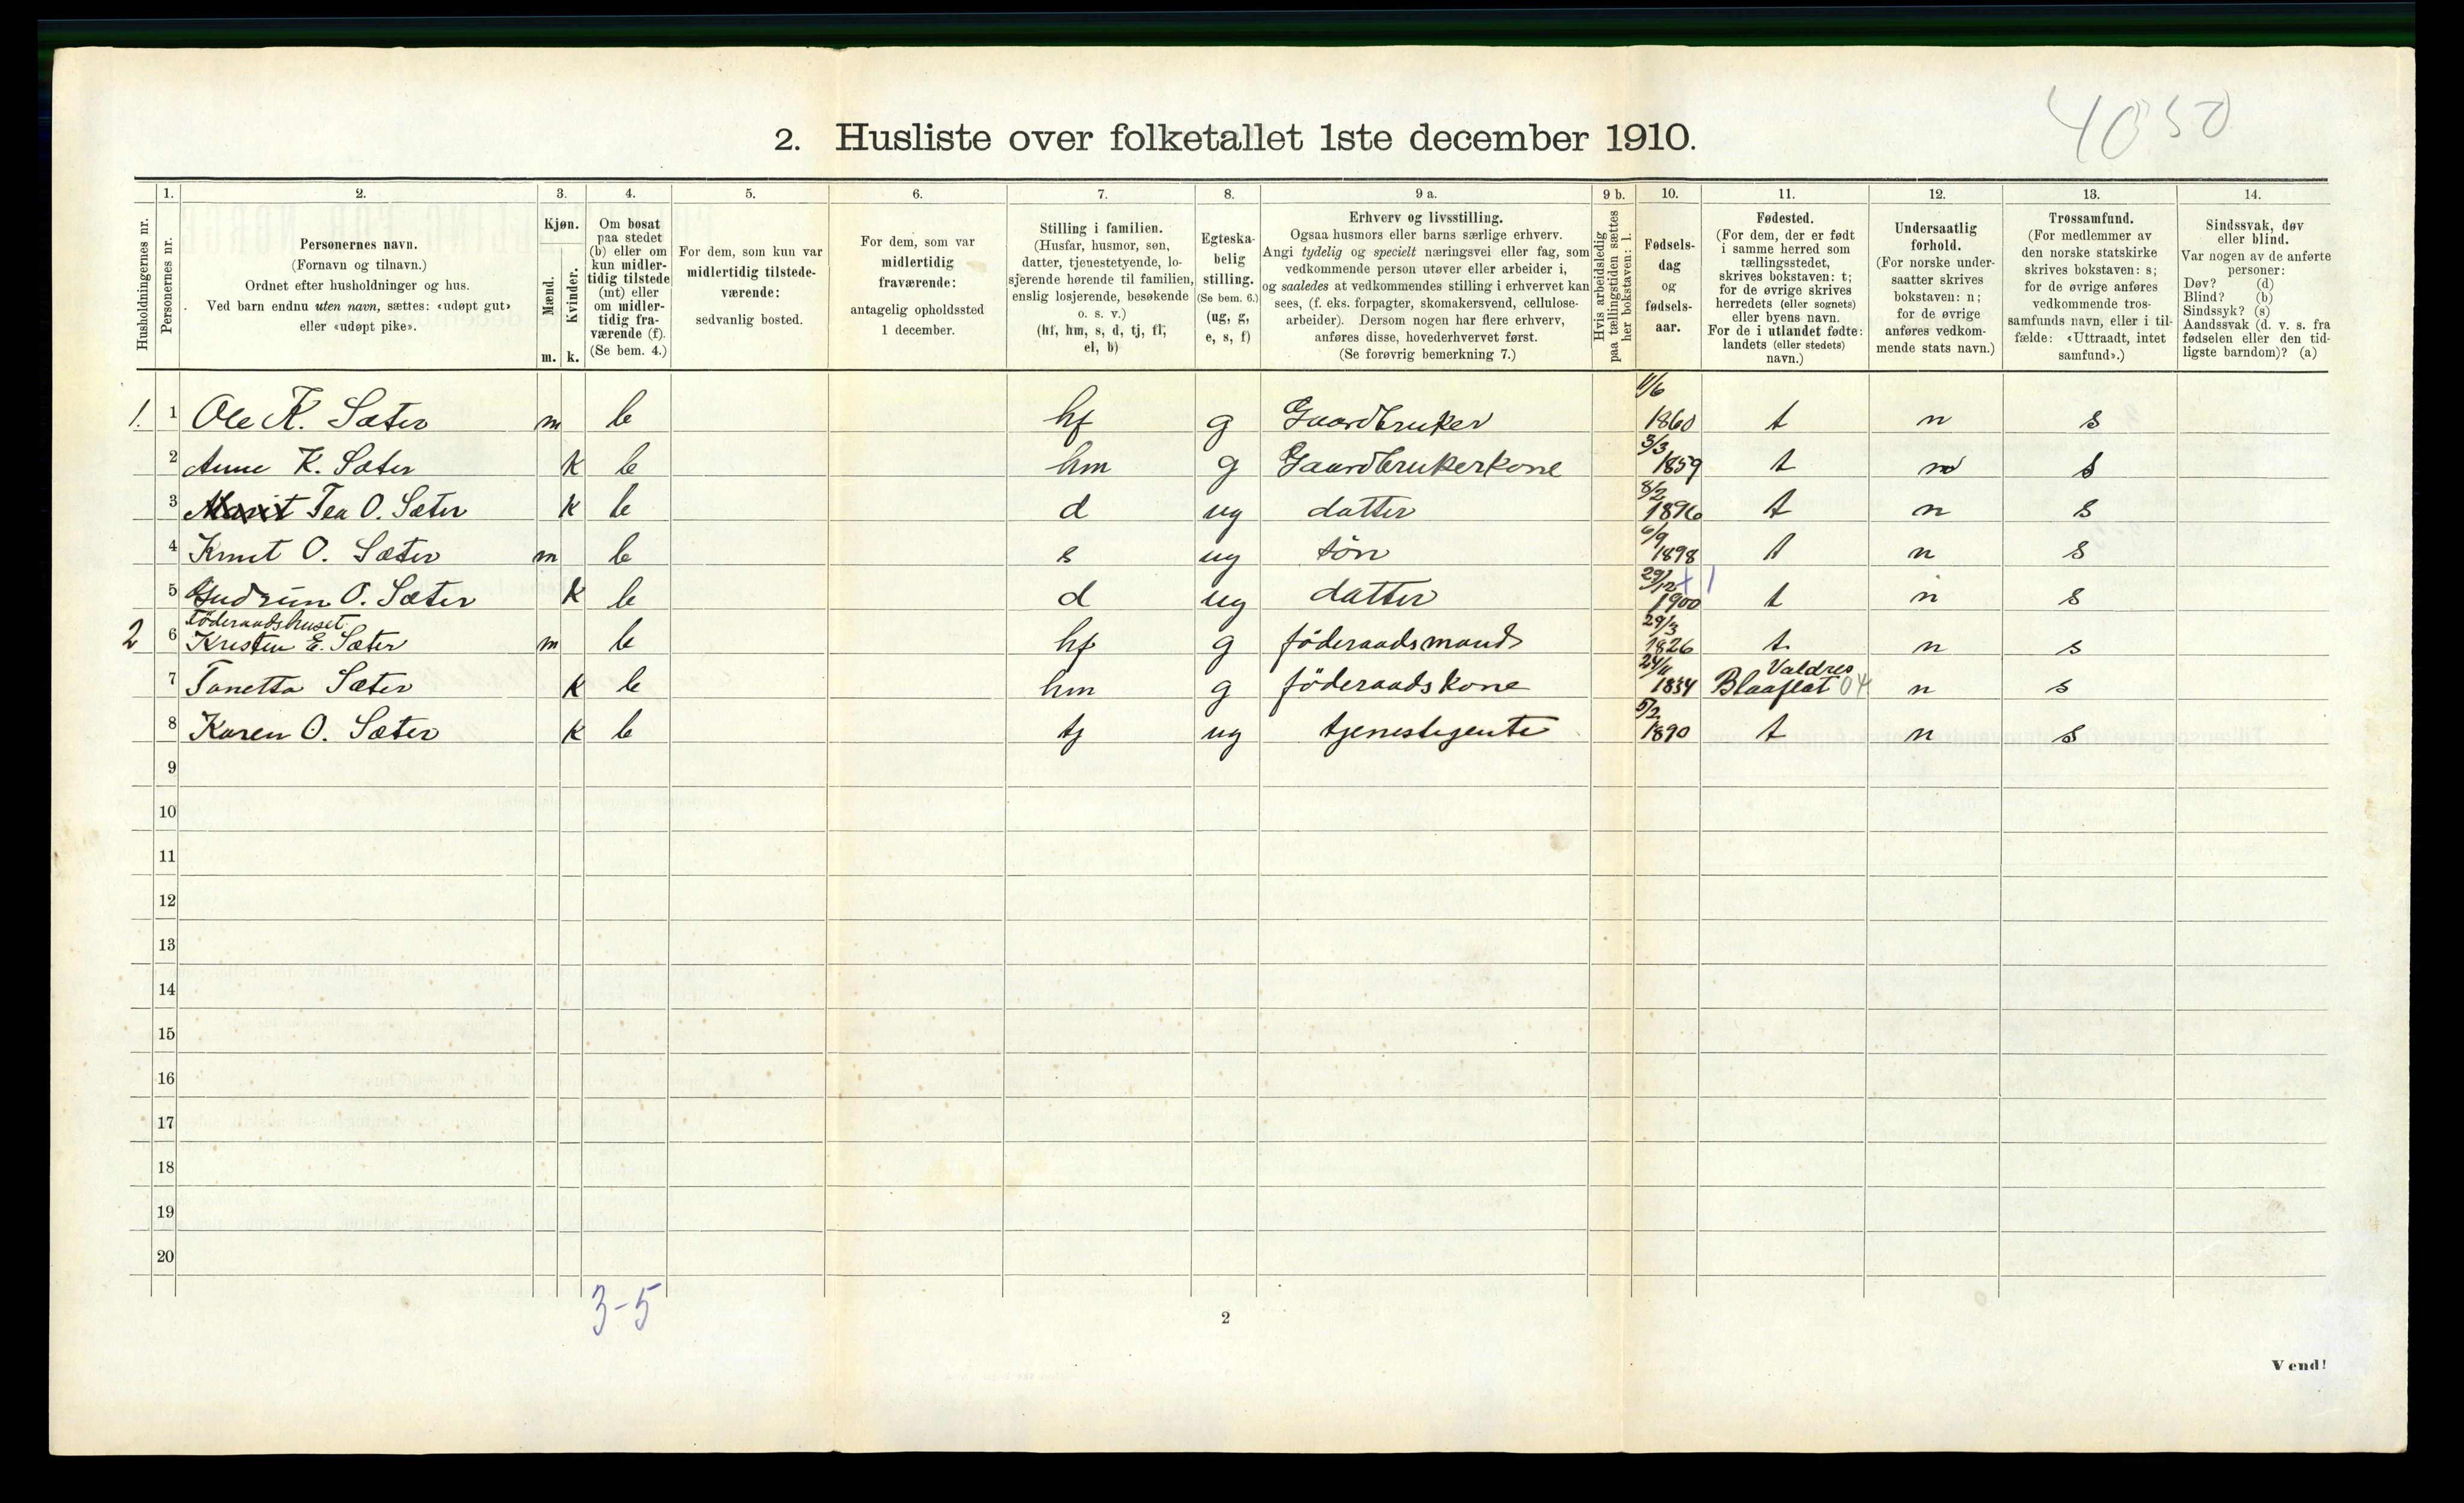 4050
2. Husliste over folketallet 1ste december 1910.
Husholdningernes nr.
1.
Personernes nr.
2.
Personernes navn.
(Fornavn og tilnavn.)
Ordnet efter husholdninger og hus.
Ved barn endnu uten navn, sættes: «udøpt gut»
eller «udøpt pike».
3.
Kjøn.
Mænd.
Kvinder.
m. k.
4.
Om bosat
paa stedet
(b) eller om
kun midler-
tidig tilstede
(mt) eller
om midler-
tidig fra-
værende (f).
(Se bem. 4.)
5.
For dem, som kun var
midlertidig tilstede-
værende:
sedvanlig bosted.
6.
For dem, som var
midlertidig
fraværende:
antagelig opholdssted
1 december.
7.
Stilling i familien.
(Husfar, husmor, søn,
datter, tjenestetyende, lo-
sjerende hørende til familien,
enslig losjerende, besøkende
o. s. v.)
(hf, hm, s, d, tj, fl,
el, b)
8.
Egteska-
belig
stilling.
(Se bem. 6.)
(ug, g,
e, s, f)
9 a.
Erhverv og livsstilling.
Ogsaa husmors eller barns særlige erhverv.
Angi tydelig og specielt næringsvei eller fag, som
vedkommende person utøver eller arbeider i,
og saaledes at vedkommendes stilling i erhvervet kan
sees, (f. eks. forpagter, skomakersvend, cellulose-
arbeider). Dersom nogen har flere erhverv,
anføres disse, hovederhvervet først.
(Se forøvrig bemerkning 7.)
9 b.
Hvis arbeidsledig
paa tællingstiden sættes
her bokstaven: l.
10.
Fødsels-
dag
og
fødsels-
aar.
11.
Fødested.
(For dem, der er født
i samme herred som
tællingsstedet,
skrives bokstaven: t;
for de øvrige skrives
herredets (eller sognets)
eller byens navn.
For de i utlandet fødte:
landets (eller stedets)
navn.)
12.
Undersaatlig
forhold.
(For norske under-
saatter skrives
bokstaven: n;
for de øvrige
anføres vedkom-
mende stats navn.)
13.
Trossamfund.
(For medlemmer av
den norske statskirke
skrives bokstaven: s;
for de øvrige anføres
vedkommende tros-
samfunds navn, eller i til-
fælde: «Uttraadt, intet
samfund».)
14.
Sindssvak, døv
eller blind.
Var nogen av de anførte
personer:
Døv? (d)
Blind? (b)
Sindssyk? (s)
Aandssvak (d. v. s. fra
fødselen eller den tid-
ligste barndom)? (a)
1. 1 Ole K. Sæter m b hf g Gaardbruker 11/6 1860 t n s
2 Anne K. Sæter k b hm g Gaardbrukerkone 3/3 1859 t n s
3 Marit Tea O. Sæter k b d ug datter 8/2 1896 t n s
4 Knut O. Sæter m b s ug søn 6/9 1898 t n s
5 Gudrun O. Sæter k b d ug datter 29/12 1900 t n s
Föderaadshuset
2 6 Kristen E. Sæter m b hf g föderaadsmand 29/3 1826 t n s
7 Tonetta Sæter k b hm g föderaadskone 24/11 1834 Valdres Blaaflat 04 n s
8 Karen O. Sæter k b tj ug tjenestegente 5/2 1890 t n s
9
10
11
12
13
14
15
16
17
18
19
20
3-5
2
Vend!